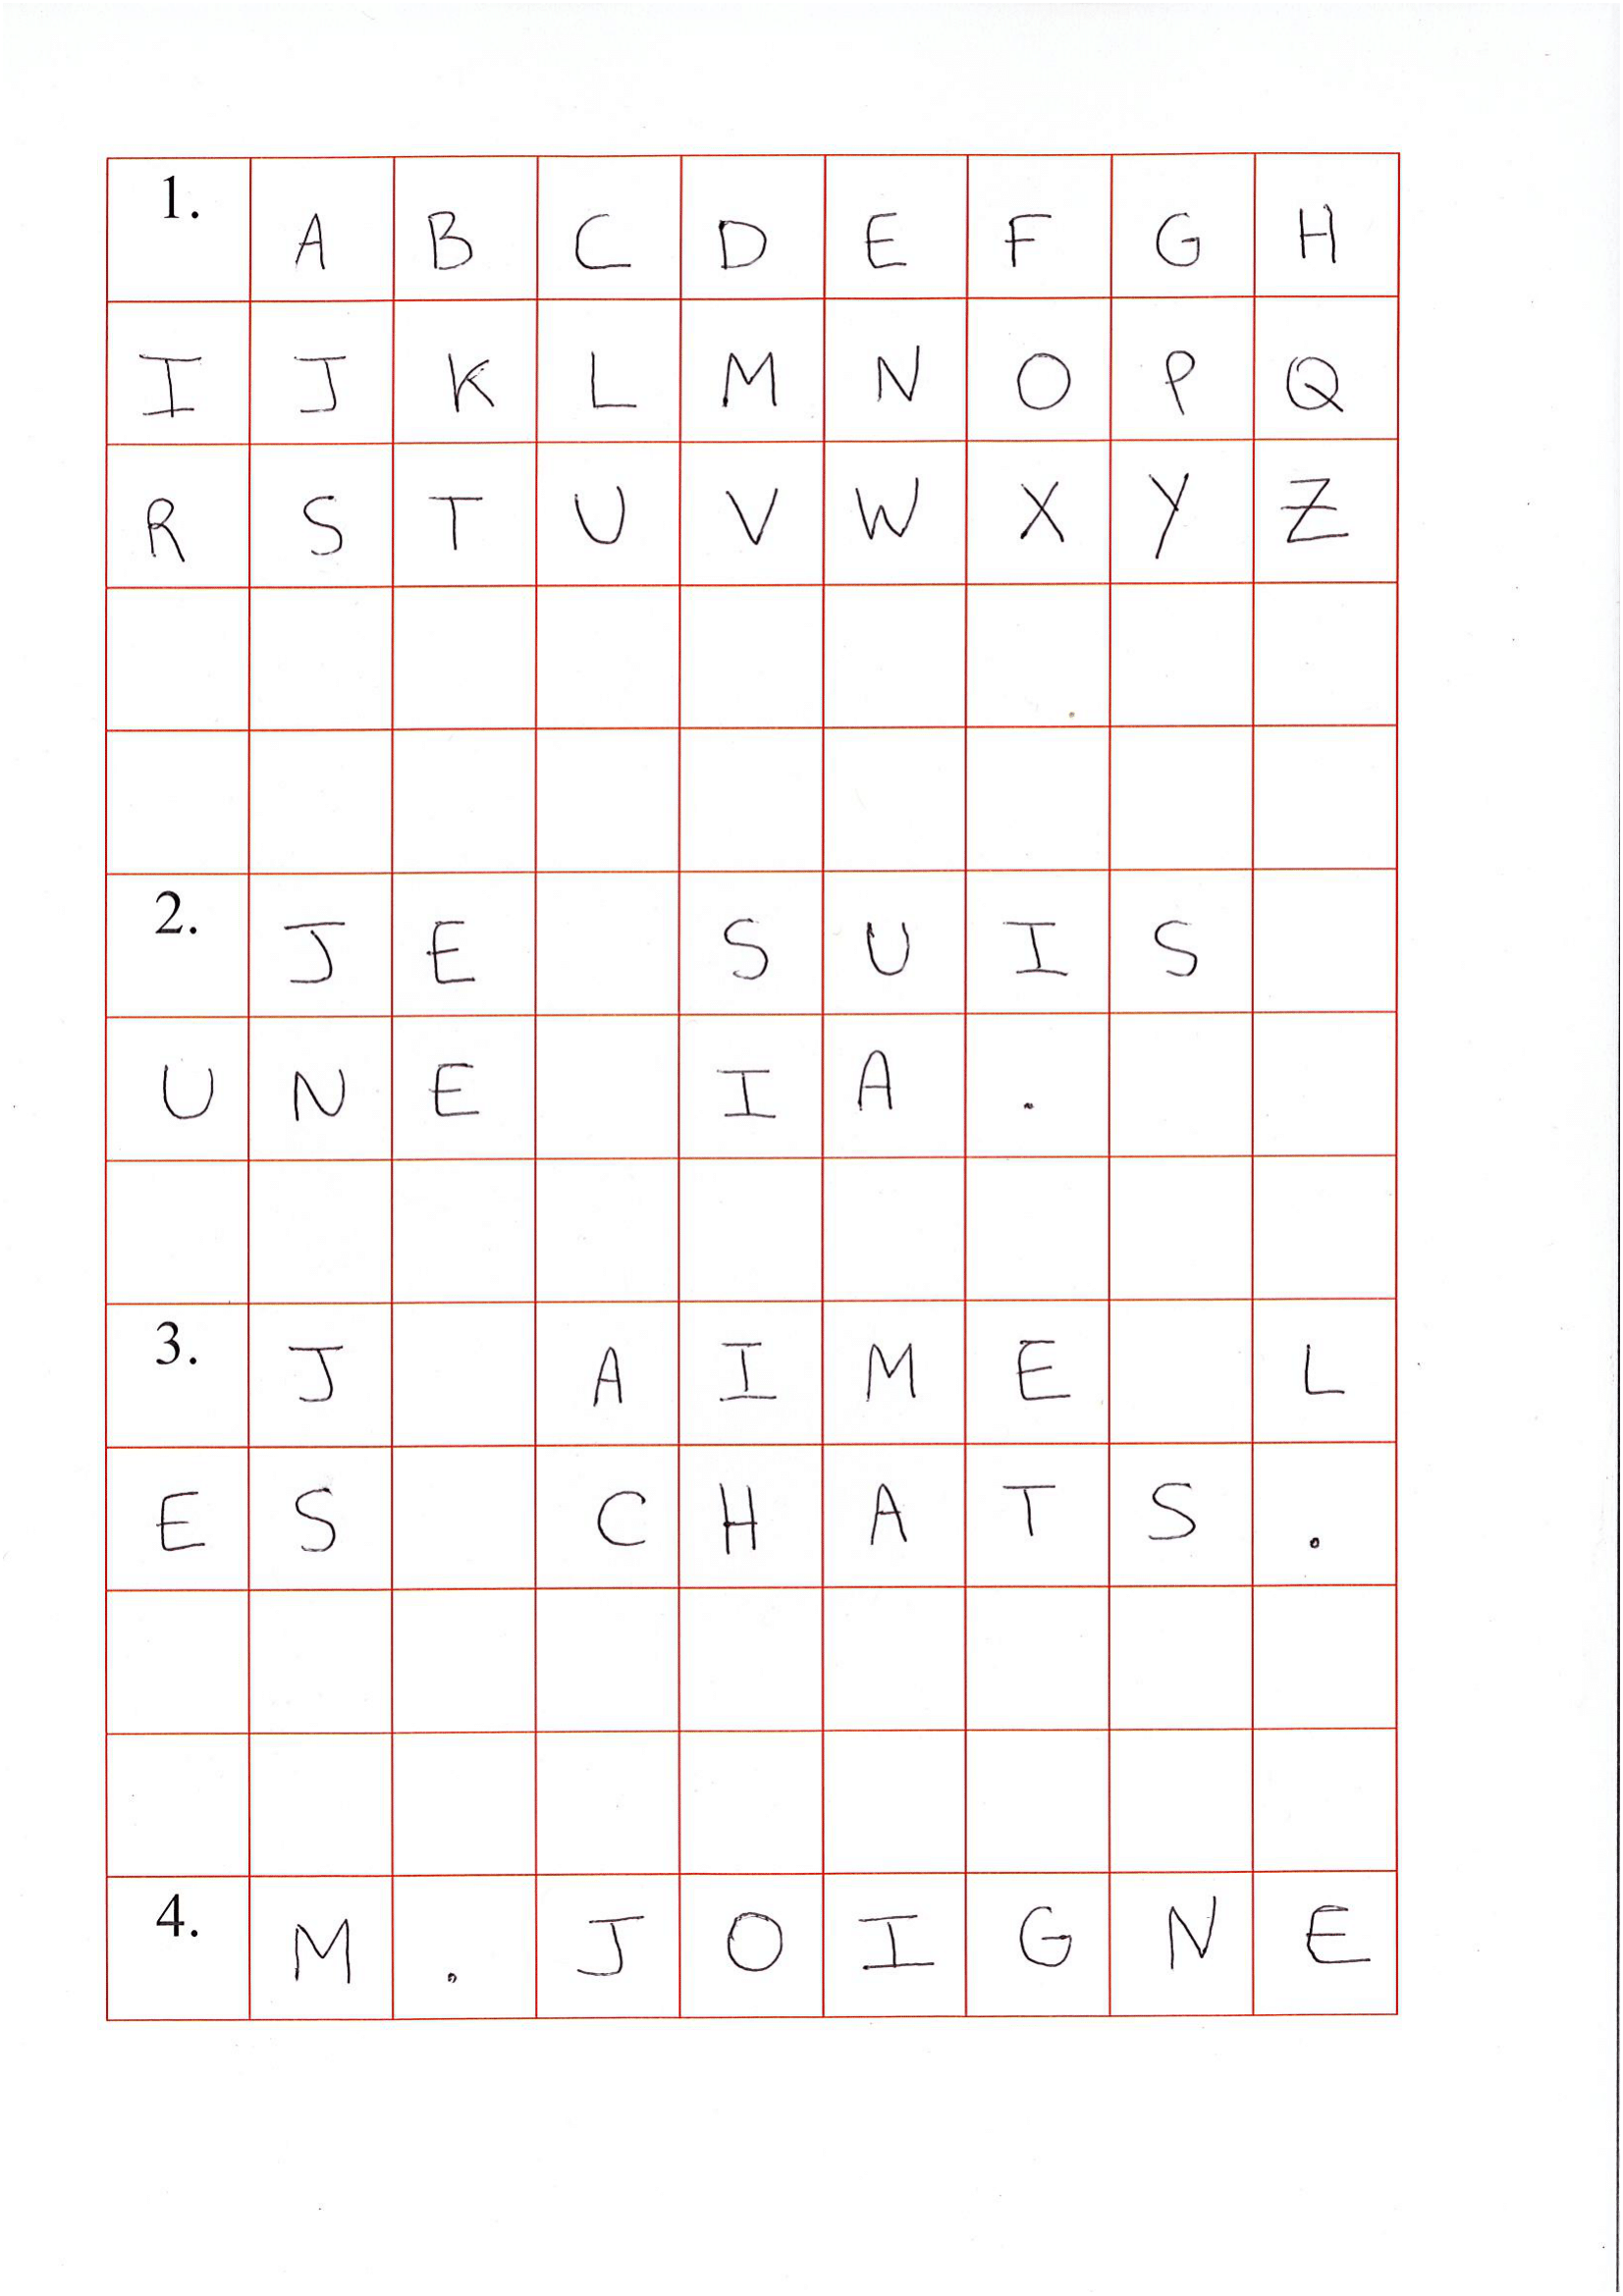 1. A B C D E F G H
I J K L M N O P Q
R S T U V W X Y Z
2. J E   S U I S
U N E   I A .
3. J   A I M E   L
E S   C H A T S .
4. M . J O I G N E